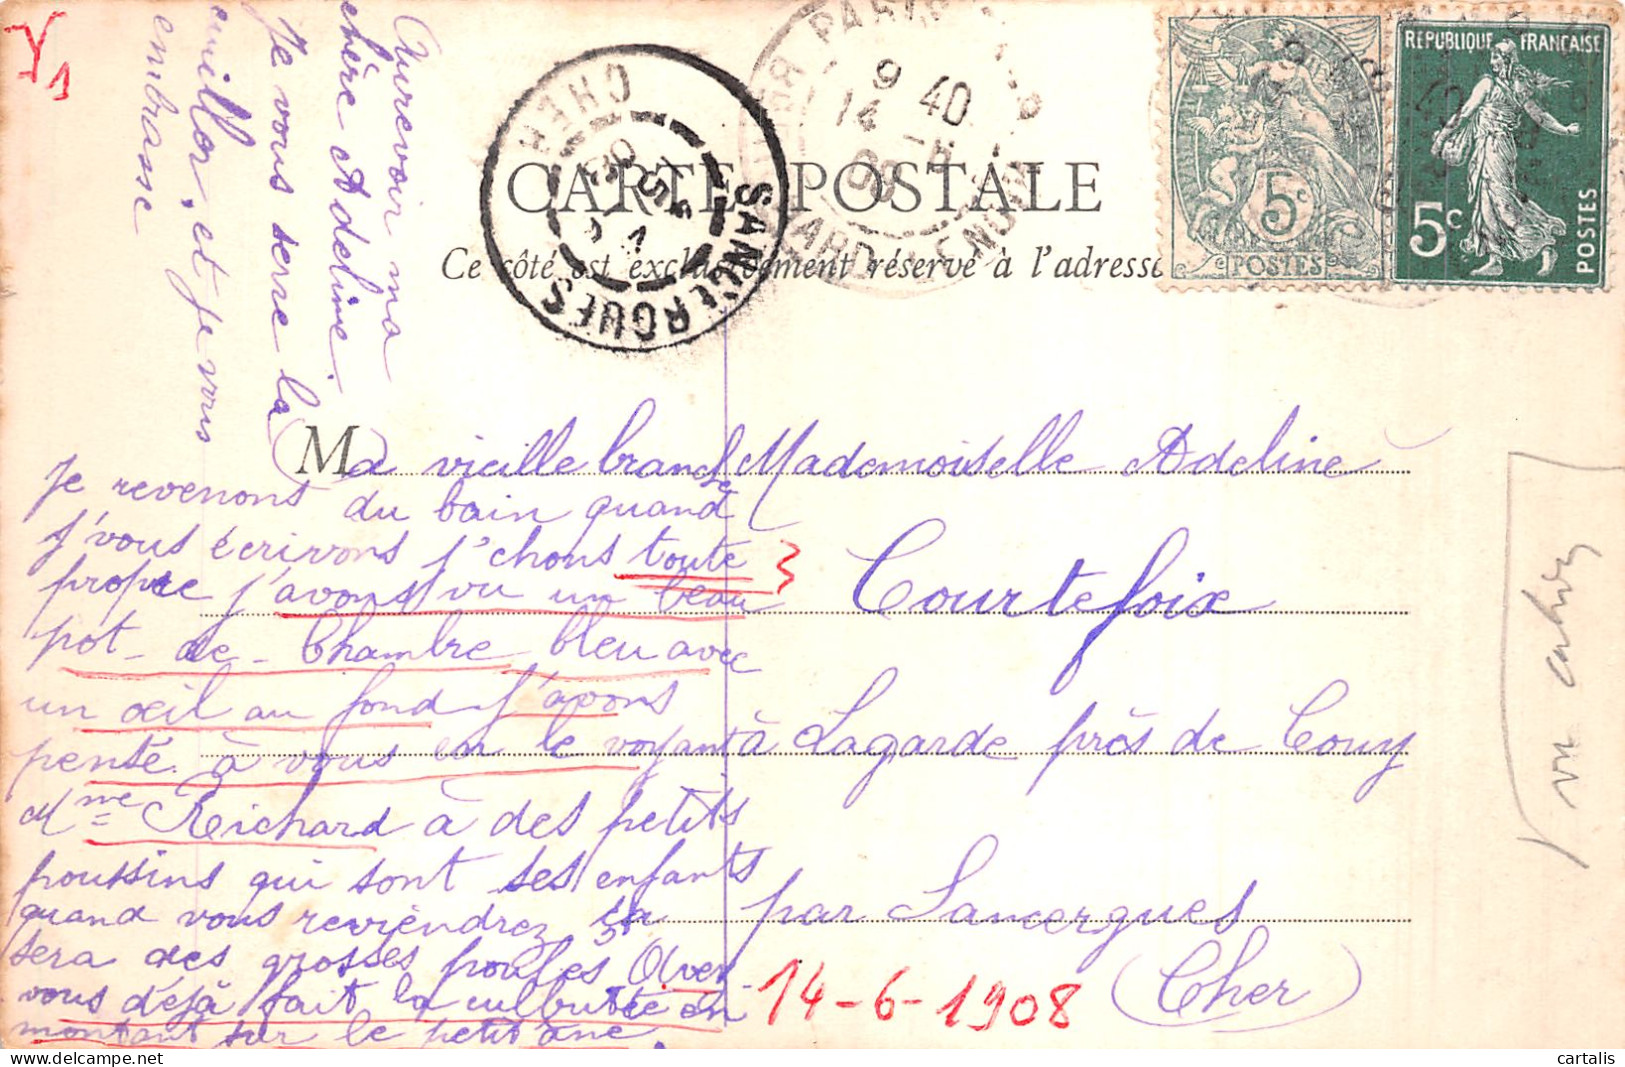 CARTE POSTALE
Ce côté est exclusivement réservé à l'adresse
REPUBLIQUE FRANÇAISE
5c
POSTES
5c
POSTES
PARIS
9 40
14
SANCERGUES
CHER
Y1
Ma vieille branche
Je revenons du bain quand
j'vous écrivons j'chons toute
propre j'avons vu un beau
pot-de-Chambre bleu avec
un œil au fond j'avons
pensé à vous en le voyant
Mme Richard à des petits
poussins qui sont ses enfants
quand vous reviendrez sa
sera des grosses poules Aver
vous déjà fait la culbutte en
montant sur le petit ane.
Aurevoir ma
chère Adeline.
Je vous serre la
et je vous
embrasse
Mademoiselle Adeline
Courtefoix
à Lagarde près de Couy
par Sancergues
(Cher)
14-6-1908
cartalis